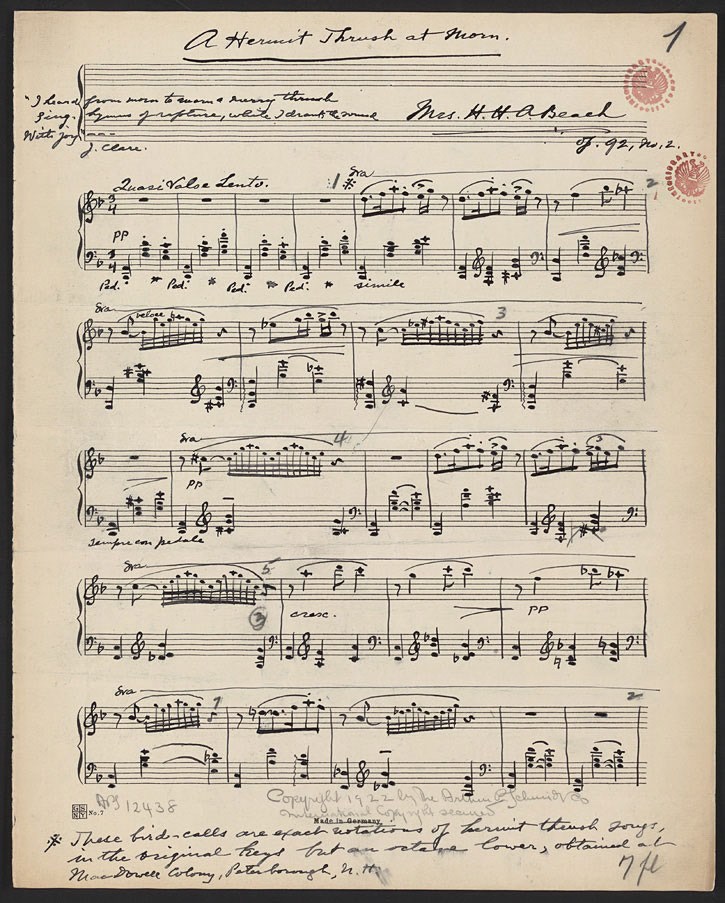 A Hermit Thrush at Morn.
1
"I heard from morn to morn a merry thrush
Sing hymns of rapture, while I drank the sound
With joy" ---
J. Clare.
Mrs. H. H. A. Beach
Op. 92, No. 2.
Quasi Valse Lento.
1
8va
2
pp
Ped. * Ped. * Ped. * Ped. * simile
8va
veloce
3
8va
4
3
pp
sempre con pedale
8va
5
3
cresc.
pp
8va
7
2
No. 7
12438
Copyright 1922 by The Arthur P. Schmidt Co
International Copyright secured
Made in Germany
* These bird-calls are exact notations of hermit thrush songs,
in the original keys but an octave lower, obtained at
MacDowell Colony, Peterborough, N. H.